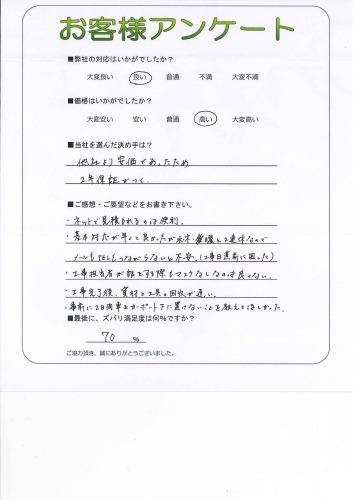 お客様アンケート
■弊社の対応はいかがでしたか？
大変良い 良い 普通 不満 大変不満
■価格はいかがでしたか？
大変安い 安い 普通 高い 大変高い
■当社を選んだ決め手は？
他社より安価であったため
2年保証がつく
■ご感想・ご要望などをお書き下さい。
・ネットで見積されるのは便利。
・基本対応が早くて良かったが水木・曜と2連休なので
メールもTELもつながらないと不安。(工事日直前に困った)
・工事担当者が話をする際もマスクなしなのは良くない。
・工事完了後、資材と工具の回収が遅い。
・事前に2日間車をカーポート下に置けないことを教えてほしかった。
■最後に、ズバリ満足度は何％ですか？
70 %
ご協力頂き、誠にありがとうございました。